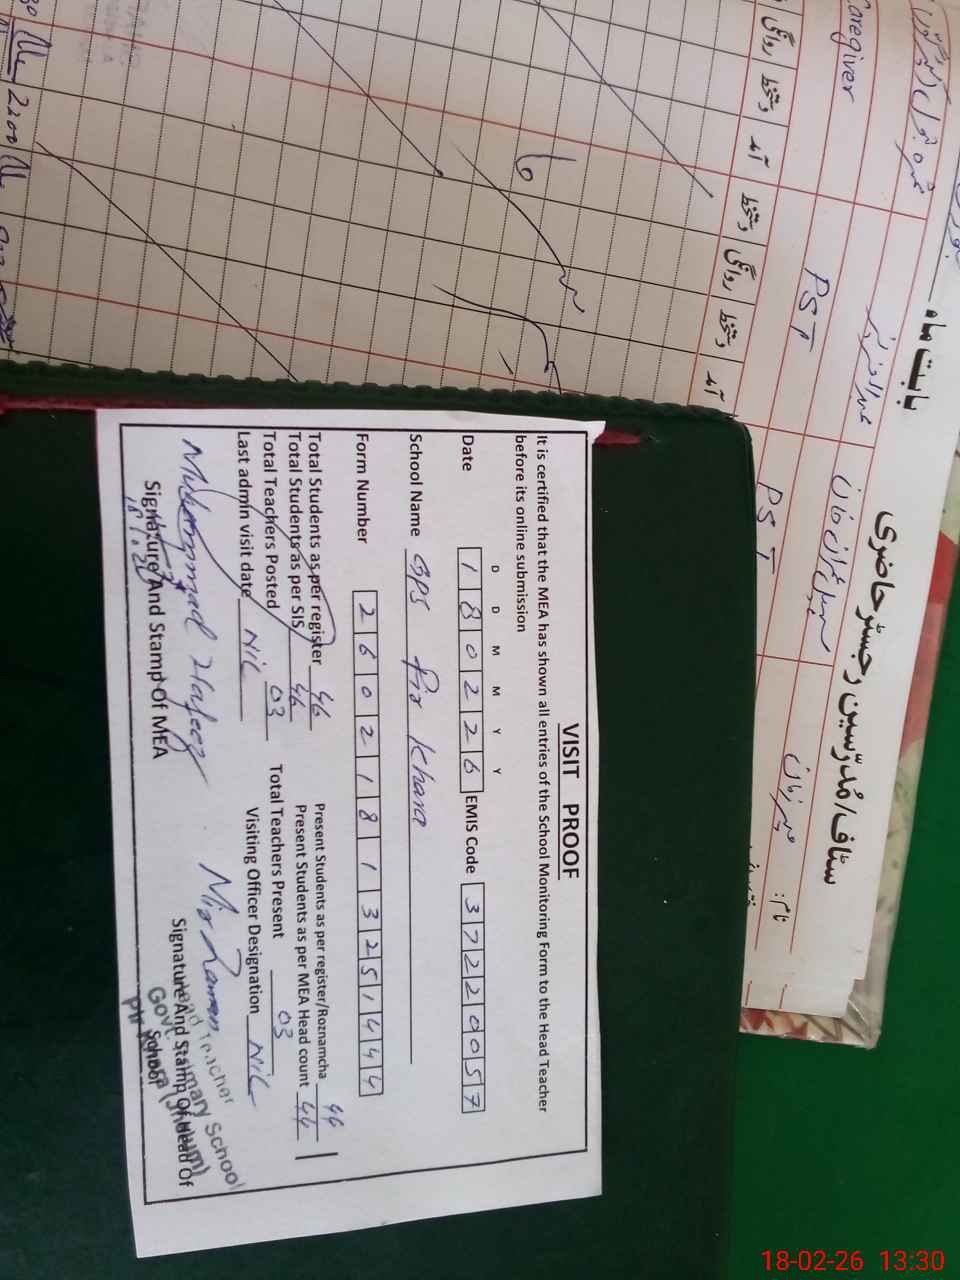 بابت ماہ
سٹاف/مُدرّسین رجسٹر حاضری
نام:
Caregiver
PST
PST
آمد دستخط روانگی دستخط آمد دستخط روانگی
VISIT PROOF
It is certified that the MEA has shown all entries of the School Monitoring Form to the Head Teacher
before its online submission
D D M M Y Y
Date 180226 EMIS Code 37220057
School Name GPS Pir Khara
Form Number 2602181325144
Total Students as per register 46 Present Students as per register/Roznamcha 46
Total Students as per SIS 46 Present Students as per MEA Head count 44
Total Teachers Posted 03 Total Teachers Present 03
Last admin visit date NiL Visiting Officer Designation NiL
Muhammad Hafeez
Signature And Stamp Of MEA
Mir Zaman
Signature And Stamp Of Head Of
School
Head Teacher
Govt. Primary School
18-02-26 13:30